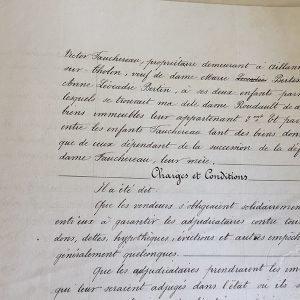 Victor Fauchereau, propriétaire demeurant à Aillant
sur-Tholon, veuf de dame Marie Léocadie Bertin
Anne Léocadie Bertin, à ses deux enfants parmi
lesquels se trouvait ma dite dame Roudault de d
biens immeubles leur appartenant 2ment Et par
entre les enfants Fauchereau tant des biens don
que de ceux dépendant de la succession de la dé
dame Fauchereau, leur mère.
Charges et Conditions
Il a été dit:
Que les vendeurs s'obligeaient solidairemen
entr'eux à garantir les adjudicataires contre tou
dons, dettes, hypothèques, évictions et autres empêch
généralement quelconques.
Que les adjudicataires prendraient les im
qui leur seraient adjugés dans l'état où ils s